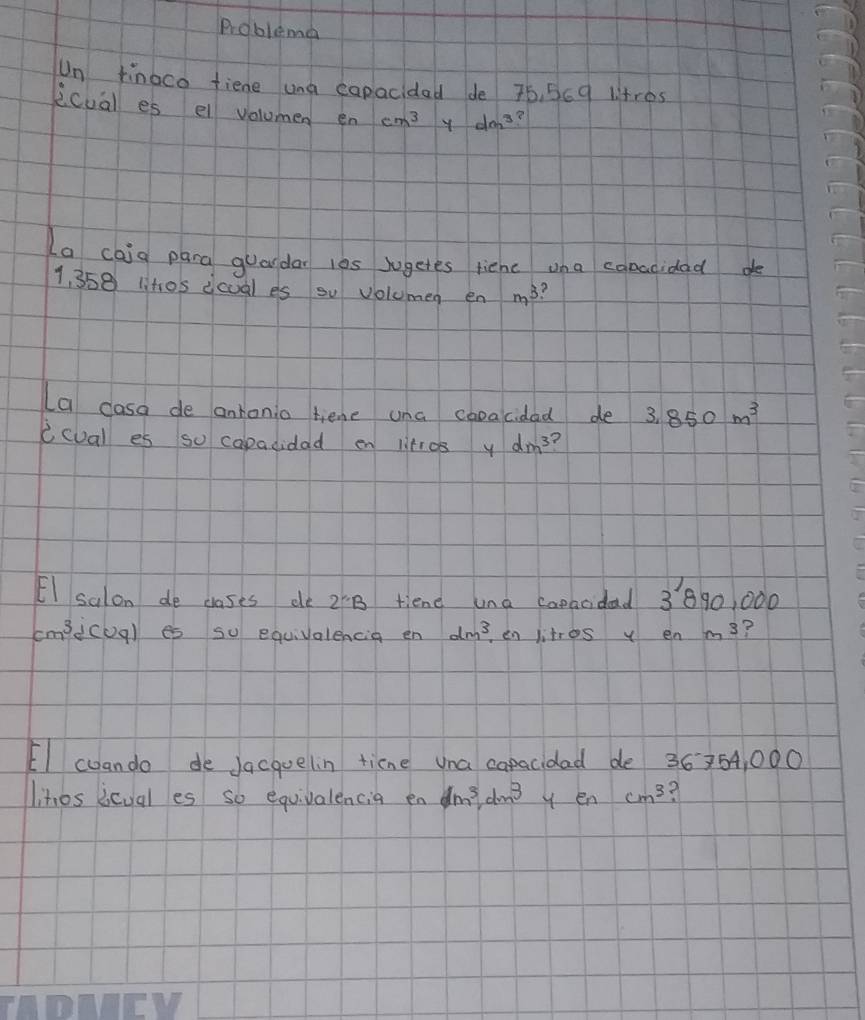 Problema
Un tinaco tiene una capacidad de 75,569 litros
¿cuál es el volumen en cm³ y dm³?
La caja para guardar los Jugetes tiene una capacidad de
1,358 litros ¿cual es su volumen en m³?
La casa de antonio tiene una capacidad de 3,850 m³
¿cual es su capacidad en litros y dm³?
El salon de clases de 2°B tiene una capacidad 3'890,000
cm³¿cual es su equivalencia en dm³, en litros y en m³?
El cuando de Jacquelin tiene una capacidad de 36'754,000
litros ¿cual es so equivalencia en m³, dm³ y en cm³?
TARMEX